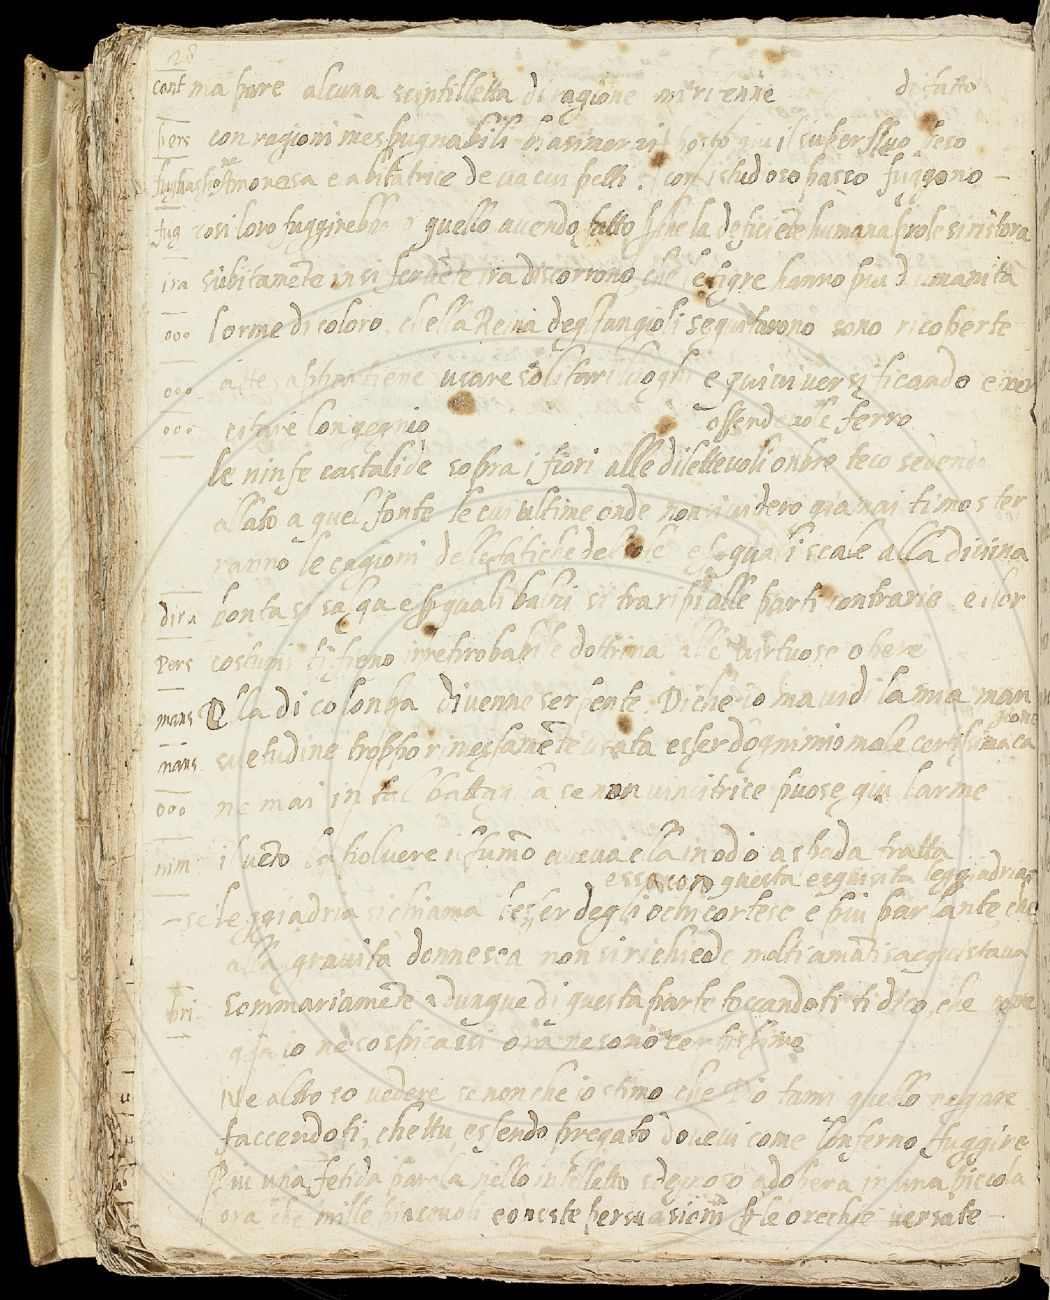 28
cont ma pare alcuna scintilletta di ragione mi rienne di fatto
pers con ragioni inespugnabili biasimarai posto giu il superfluo peso
monessa e abitatrice de vacui petti. con istudioso passo fuggono
fug cosi loro fuggirebbono quello avendo fatto che la deficiẽte humana prole si ristora
ira subitamẽte in si fervẽte ira discorrono che le tigre hanno piu d umanita
ooo l orme di coloro, chella Reina degli angioli seguitarono sono ricoberte
ooo usare solitari luoghi e quivi versificando exer
ooo citare l ongegnio offendevole ferro
le ninfe castalide sopra i fiori alle dilettevoli onbre teco sedendo
allato a quel fonte le cui ultime onde non si videro giamai ti moster
ranno le cagioni delle fatiche del sole e p quali scale alla divina
dira bonta si salga e p quali balzi si traripi alle parti contrarie e i lor
pers costumi ti fieno irreprobabile dottrina alle virtuose opere
mans Ella di colonba divenne serpente. Di che io ma vidi la mia man
mans suetudine troppo rimessamẽte usata esser dogni mio male certissima ca
gione
ooo ne mai in tal battaglia se non vincitrice puose giu l arme
nim il vẽto la fiolvere il fumo aveva ella in odio a spada tratta
essa con questa esquisita leggiadria
se leggiadria si chiama l esser degli ochi cortese e piu parlante, che
alla gravita donnesca non si richiede molti amãti sacquistava
bri sommariamẽte adunque di questa parte toccandoti ti dico, che
io ne sospicassi ora ne sono certissimo
Ne altro so vedere se non che io stimo che Dio tanni quello negare
faccendoti, chettu, essendo pregato dovevi come l onferno fuggire
Piu una fetida parola nello intelletto sdegnoso adopera in una piccola
ora che mille piacevoli e oneste persuasioni p le orechie versate